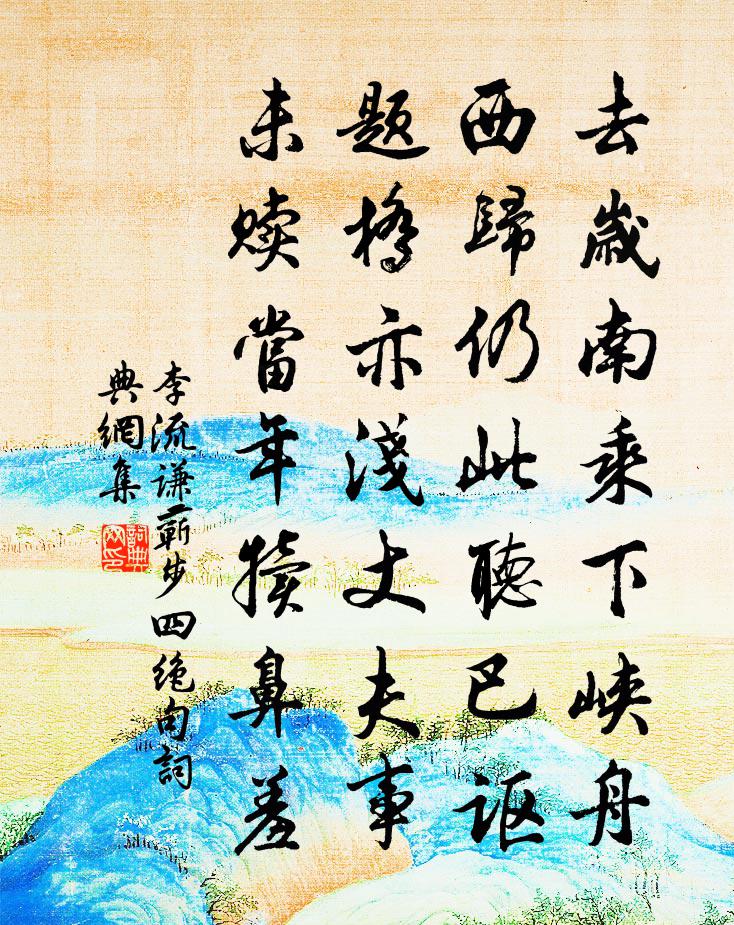 去歲南乘下峽舟
西歸仍此聽巴謳
題橋亦淺丈夫事
未贖當年犢鼻羞
李流謙蘄步四絶句詞
典網集
詞典